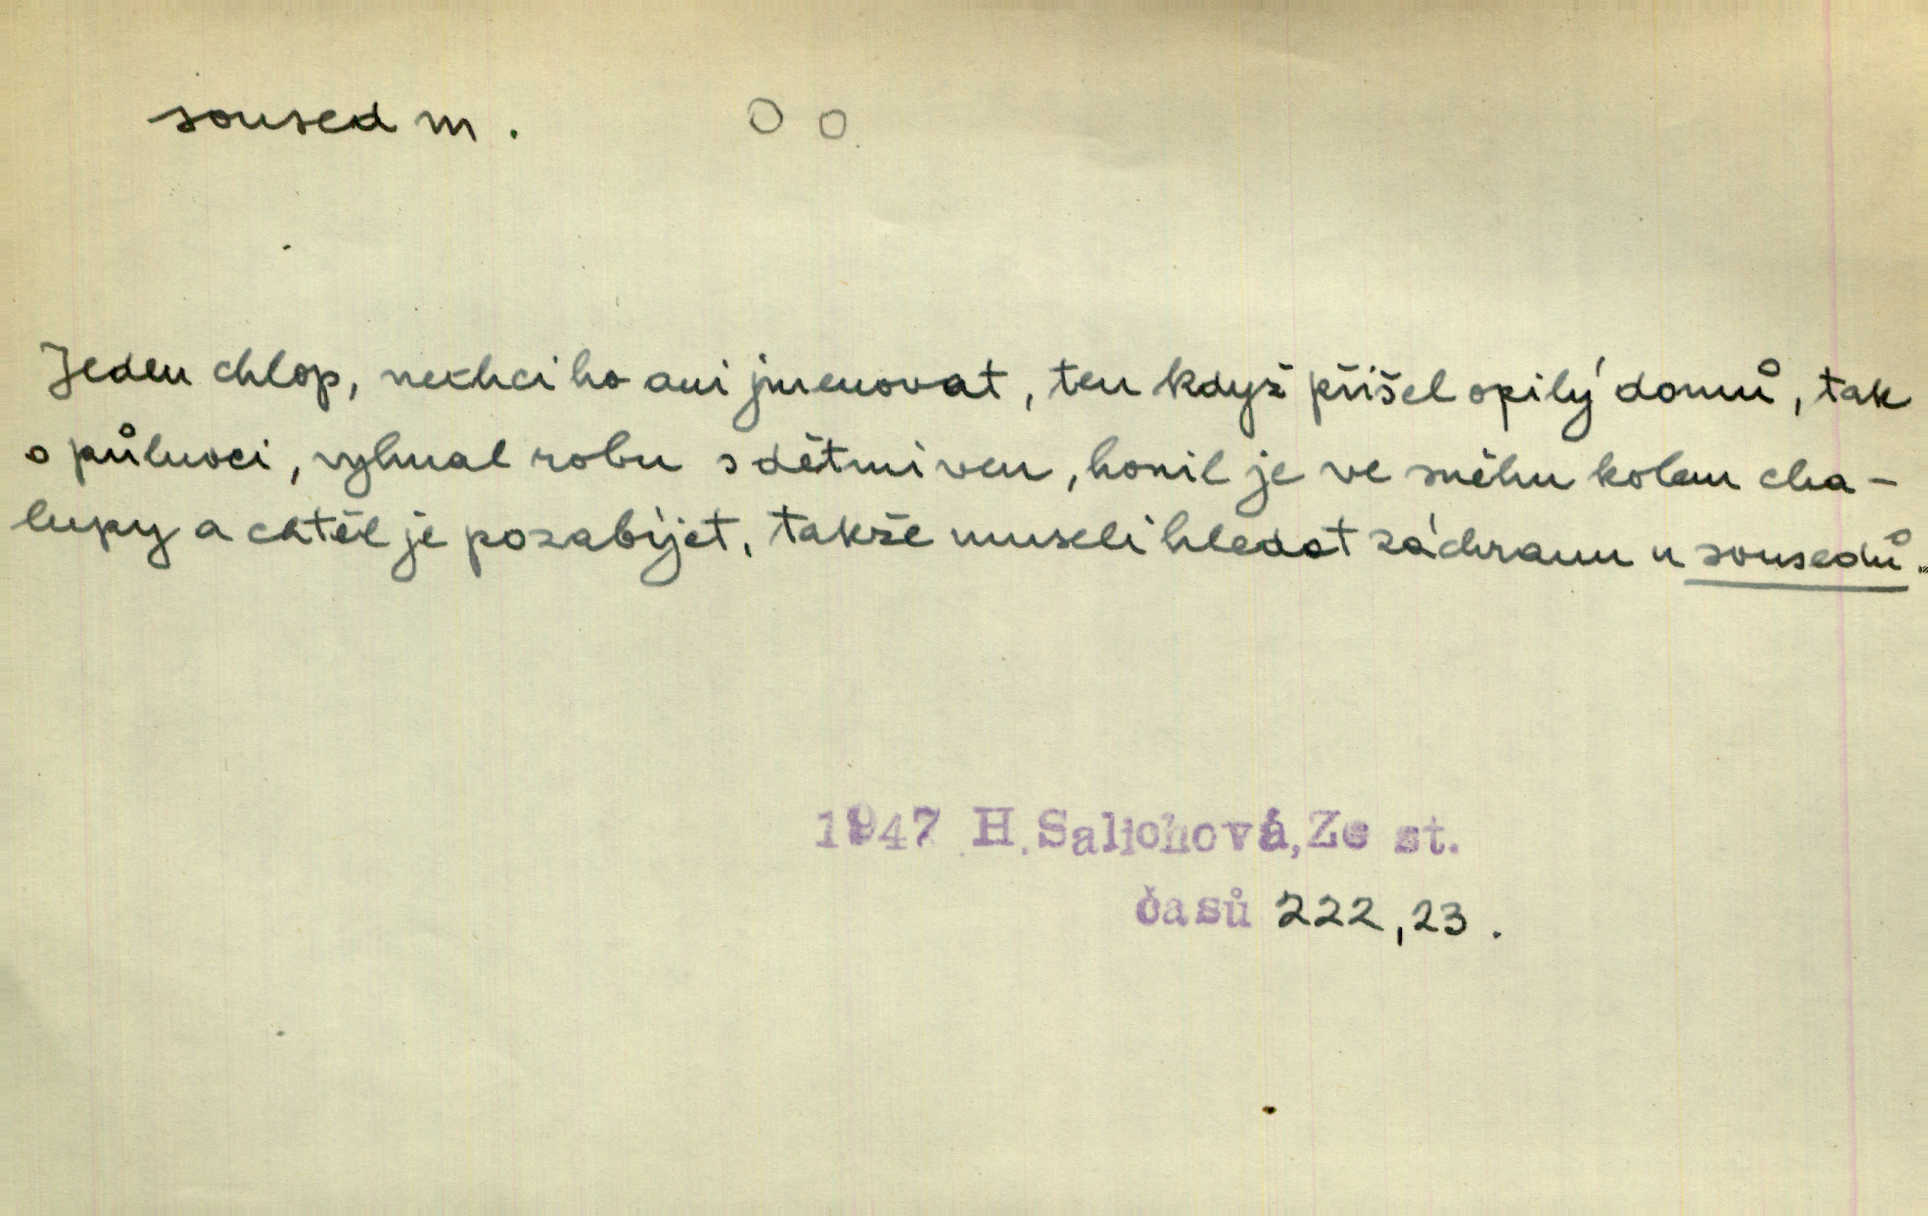 soused m. O O
Jeden chlop, nechci ho ani jmenovat, ten když přišel opilý domů, tak
o půlnoci, vyhnal robu s dětmi ven, honil je ve sněhu kolem cha-
lupy a chtěl je pozabíjet, takže museli hledat záchranu u sousedů.
1947 H. Salichová, Ze st.
časů 222, 23.